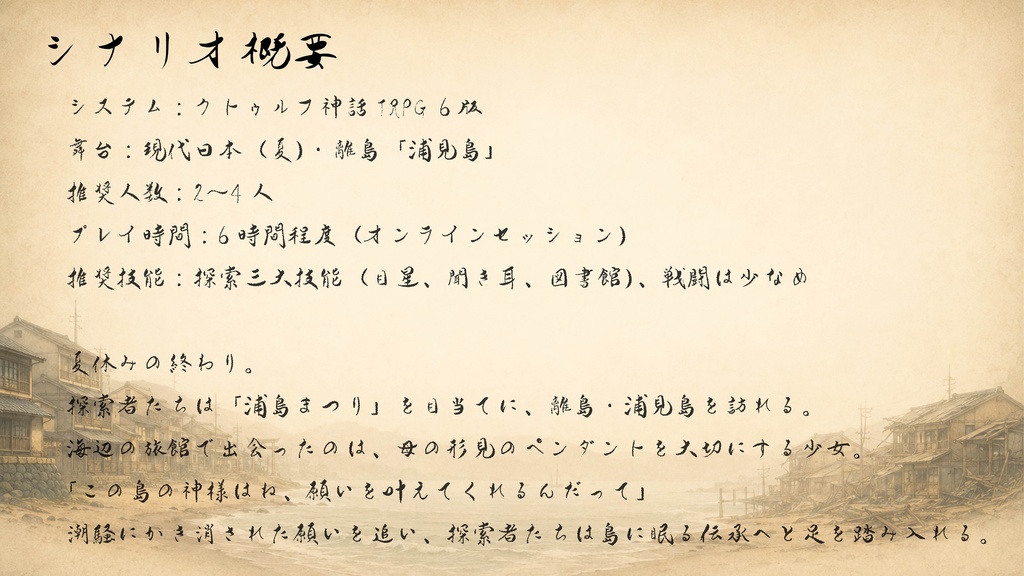 シナリオ概要
システム：クトゥルフ神話TRPG 6版
舞台：現代日本（夏）・離島「浦見島」
推奨人数：2〜4人
プレイ時間：6時間程度（オンラインセッション）
推奨技能：探索三大技能（目星、聞き耳、図書館）、戦闘は少なめ
夏休みの終わり。
探索者たちは「浦島まつり」を目当てに、離島・浦見島を訪れる。
海辺の旅館で出会ったのは、母の形見のペンダントを大切にする少女。
「この島の神様はね、願いを叶えてくれるんだって」
潮騒にかき消された願いを追い、探索者たちは島に眠る伝承へと足を踏み入れる。